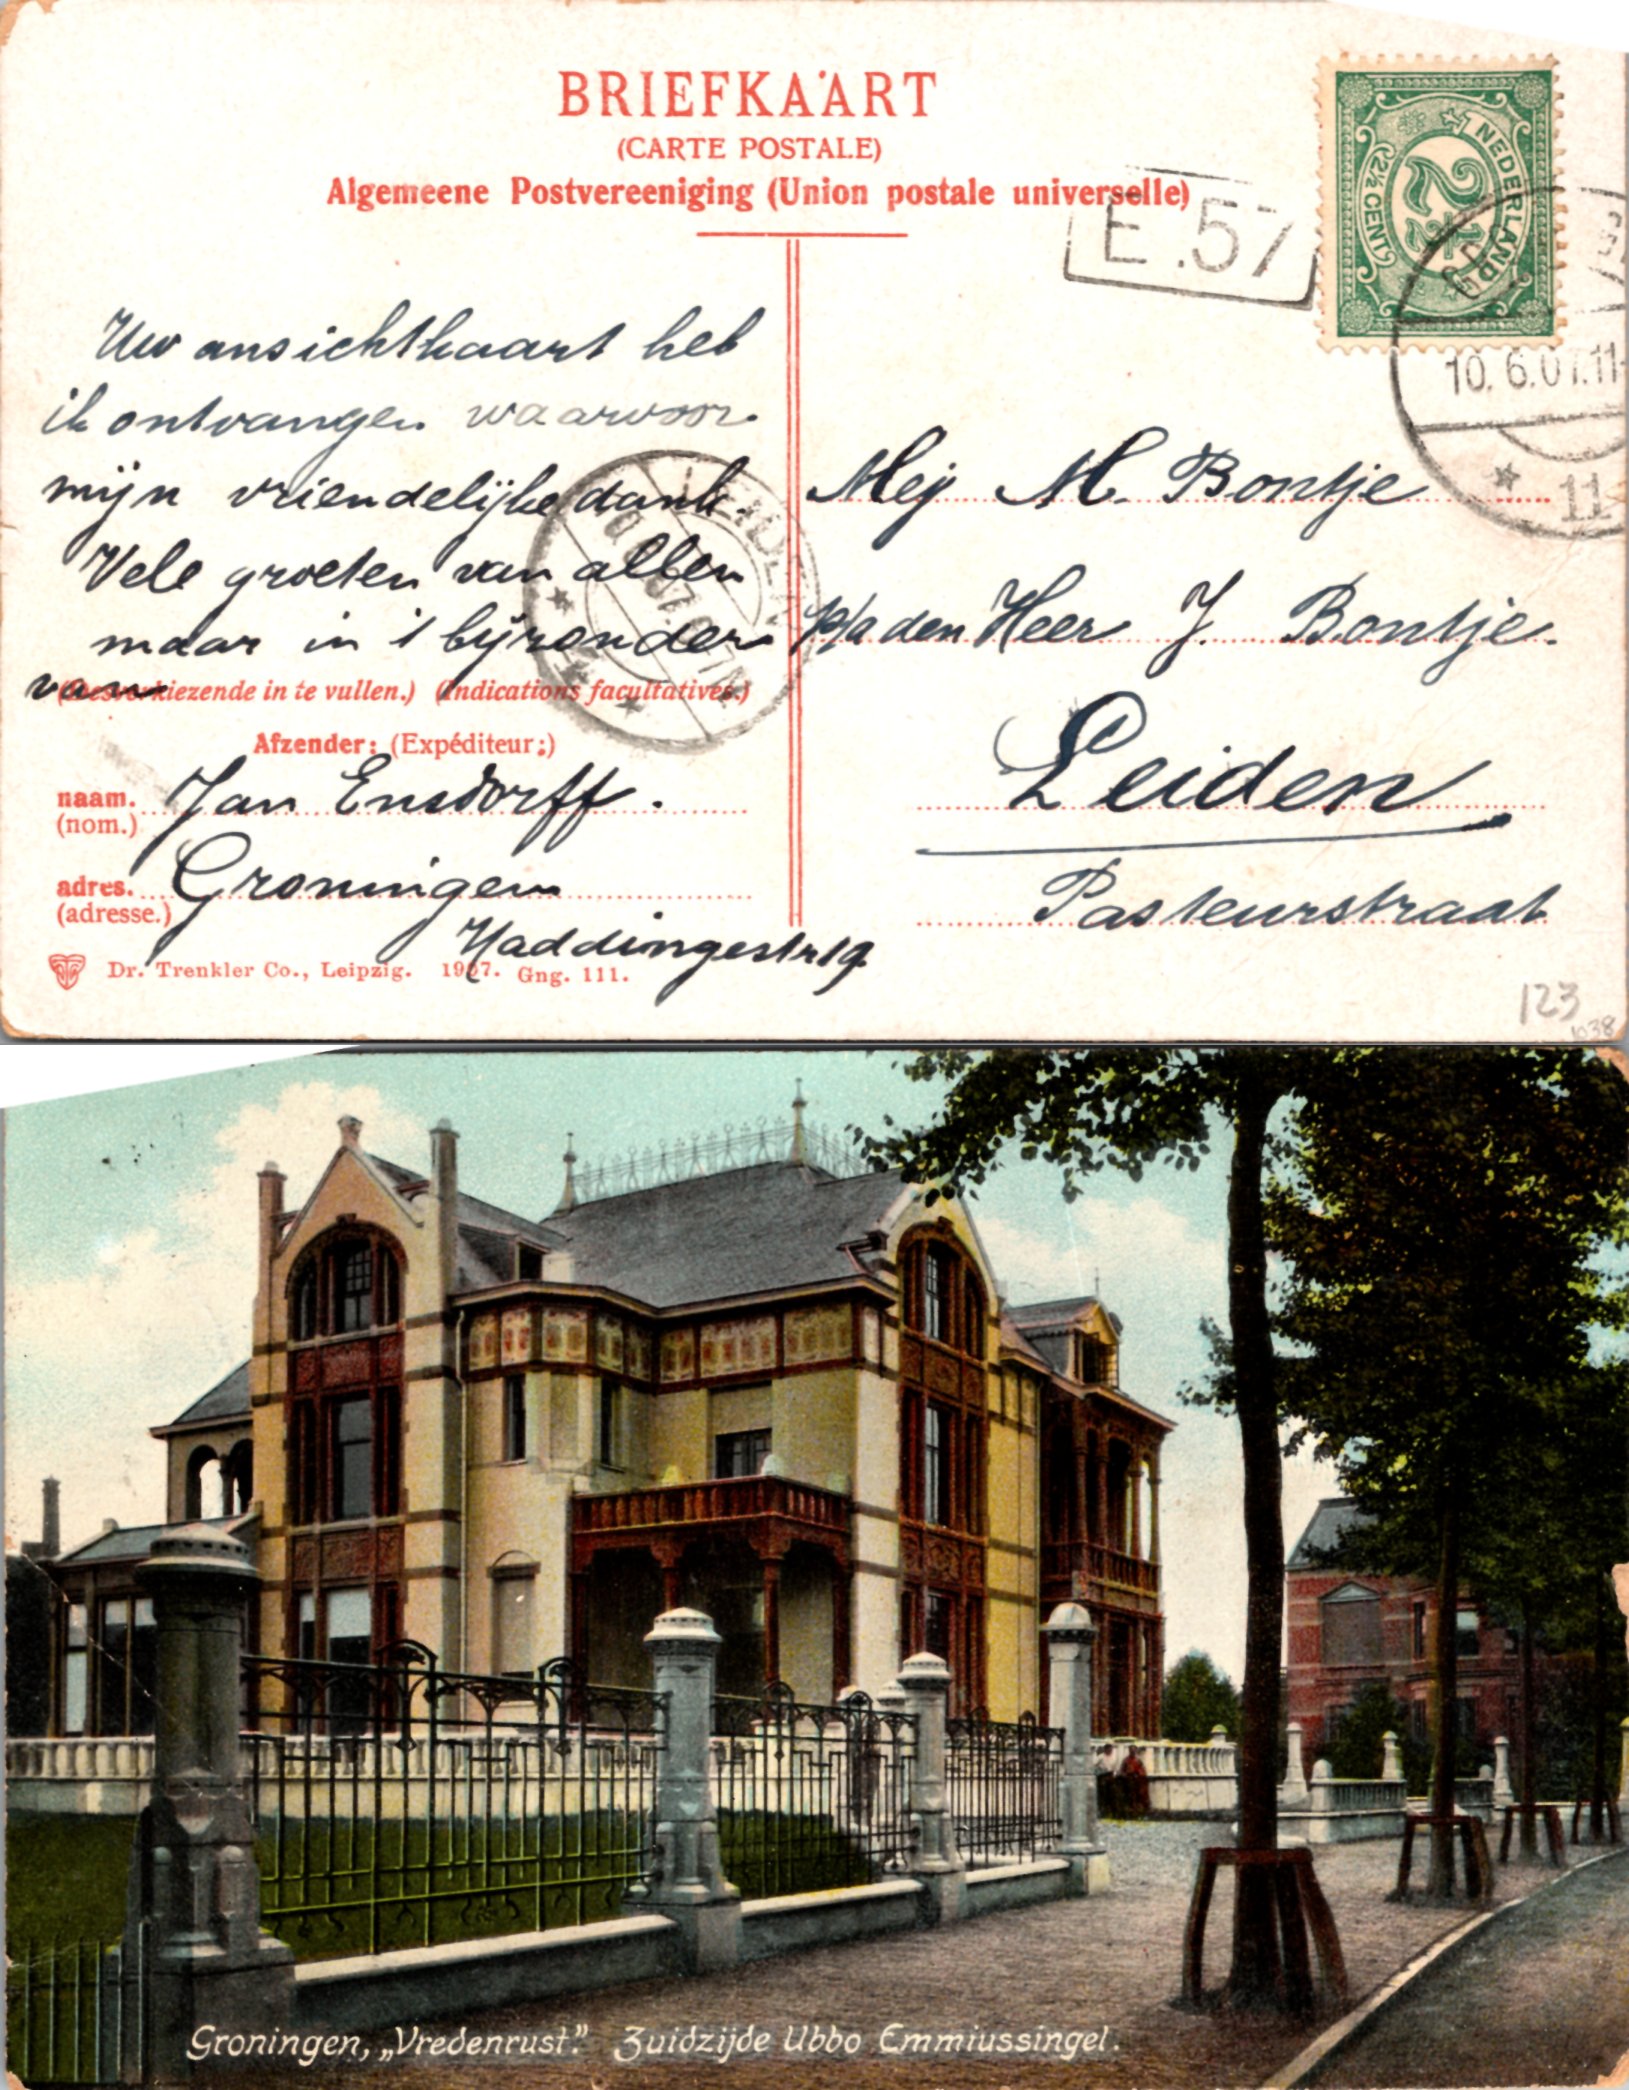 BRIEFKAART
(CARTE POSTALE)
Algemeene Postvereeniging (Union postale universelle)
E.57
NEDERLAND
2½
(2½ CENT)
10.6.07.11
11
Uw ansichtkaart heb
ik ontvangen waarvoor
mijn vriendelijke dank.
Vele groeten van allen
maar in 't bijzonder
van
(Desverkiezende in te vullen.) (Indications facultatives.)
LEIDEN
Afzender: (Expéditeur:)
naam. Jan Ensdorff.
(nom.)
adres. Groningen
(adresse.)
Haddingestr 19.
Dr. Trenkler Co., Leipzig. 1907. Gng. 111.
Mej M. Bontje
p/a den Heer J. Bontje.
Leiden
Pasteurstraat
123
1038
Groningen, „Vredenrust." Zuidzijde Ubbo Emmiussingel.